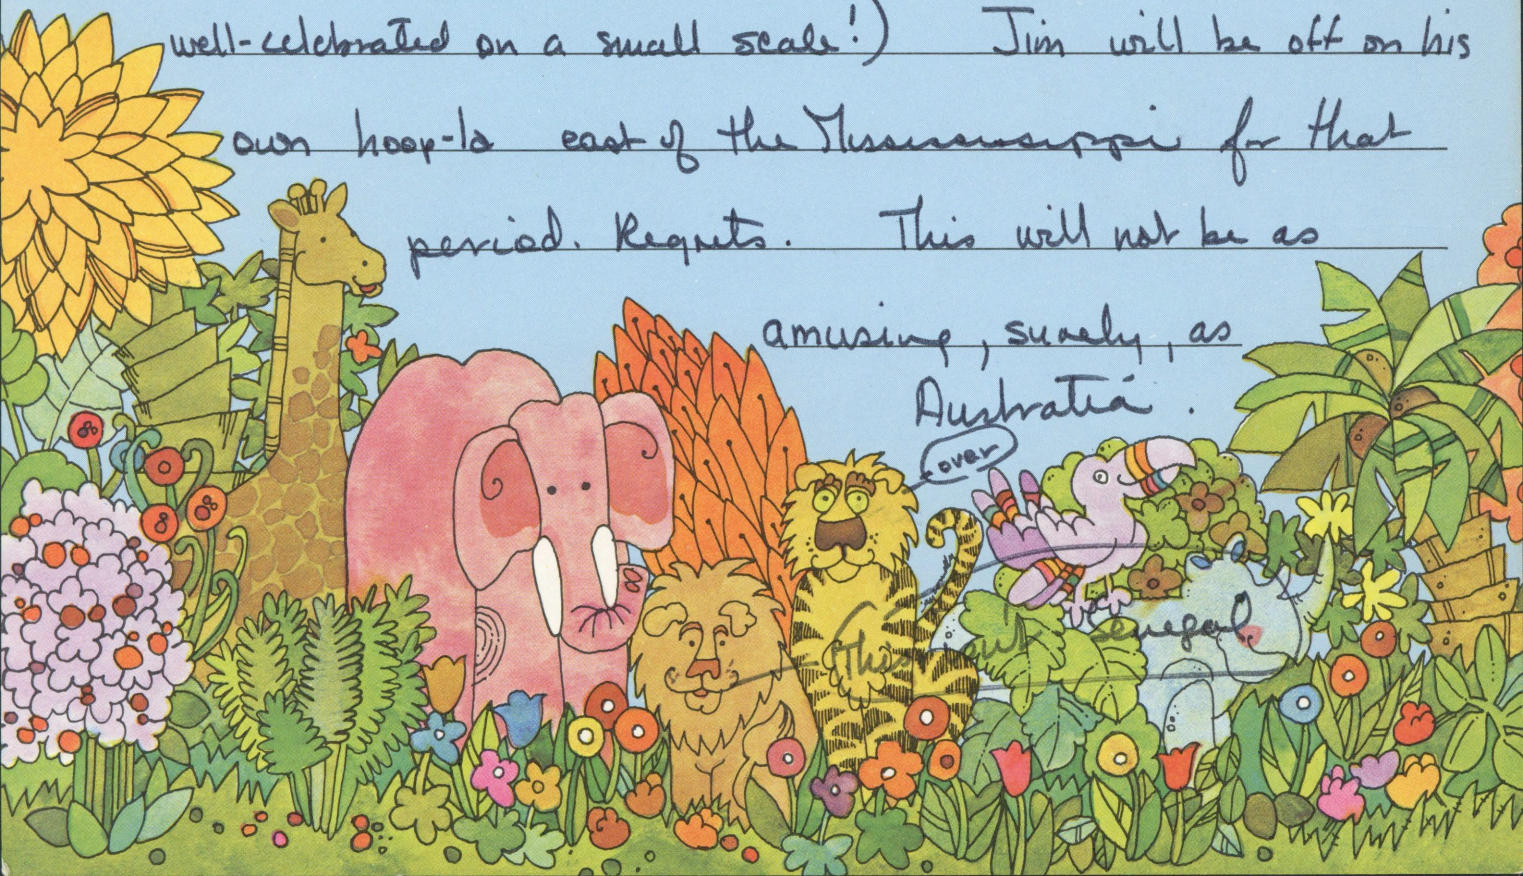 well-celebrated on a small scale!) Jim will be off on his
own hoop-la east of the Mississississippi for that
period. Regrets. This will not be as
amusing, surely, as
Australia.
over
This Senegal